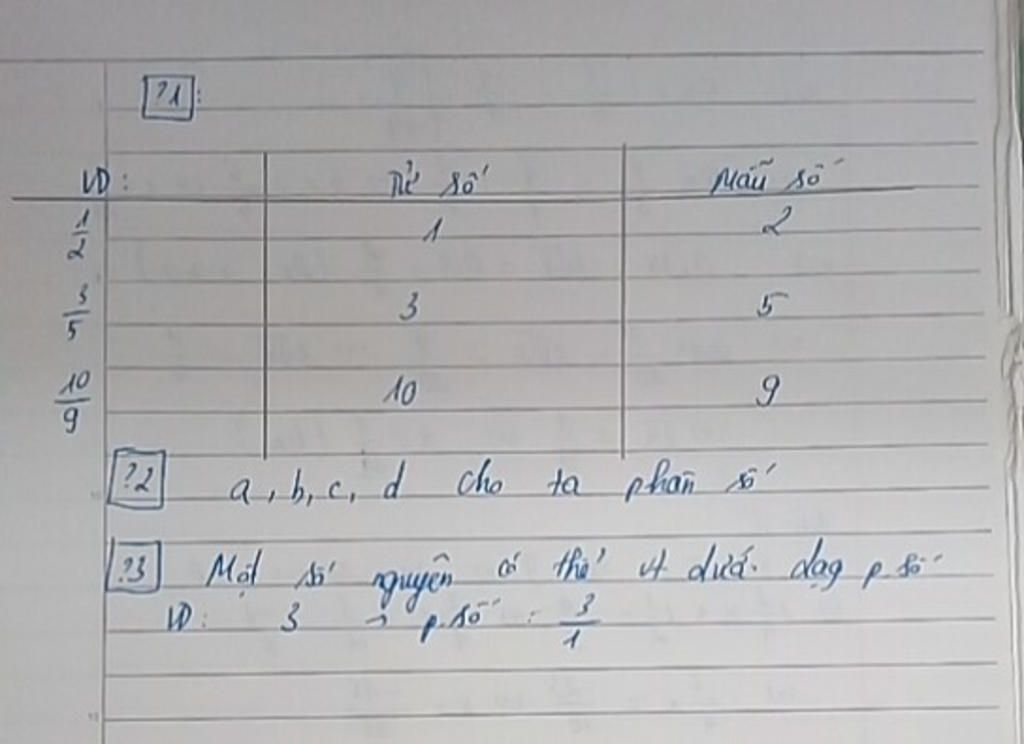 ?1:
VD: Tử số Mẫu số
1/2 1 2
3/5 3 5
10/9 10 9
?2 a, b, c, d cho ta phân số
?3 Một số nguyên có thể vt dưới dạg p.số
VD: 3 → p.số: 3/1